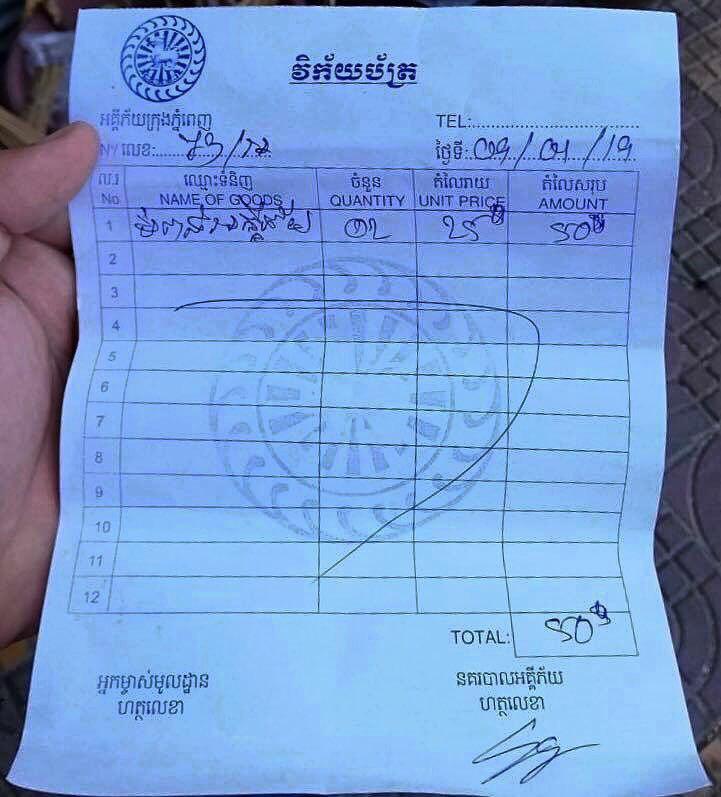 វិក័យប័ត្រ
អគ្គីភ័យក្រុងភ្នំពេញ
TEL:
Nº លេខ:
ថ្ងៃទី: 09/01/19
ល.រ ឈ្មោះទំនិញ ចំនួន តំលៃរាយ តំលៃសរុប
No NAME OF GOODS QUANTITY UNIT PRICE AMOUNT
1 02 25$ 50$
2
3
4
5
6
7
8
9
10
11
12
TOTAL: 50$
អ្នកម្ចាស់មូលដ្ឋាន នគរបាលអគ្គីភ័យ
ហត្ថលេខា ហត្ថលេខា